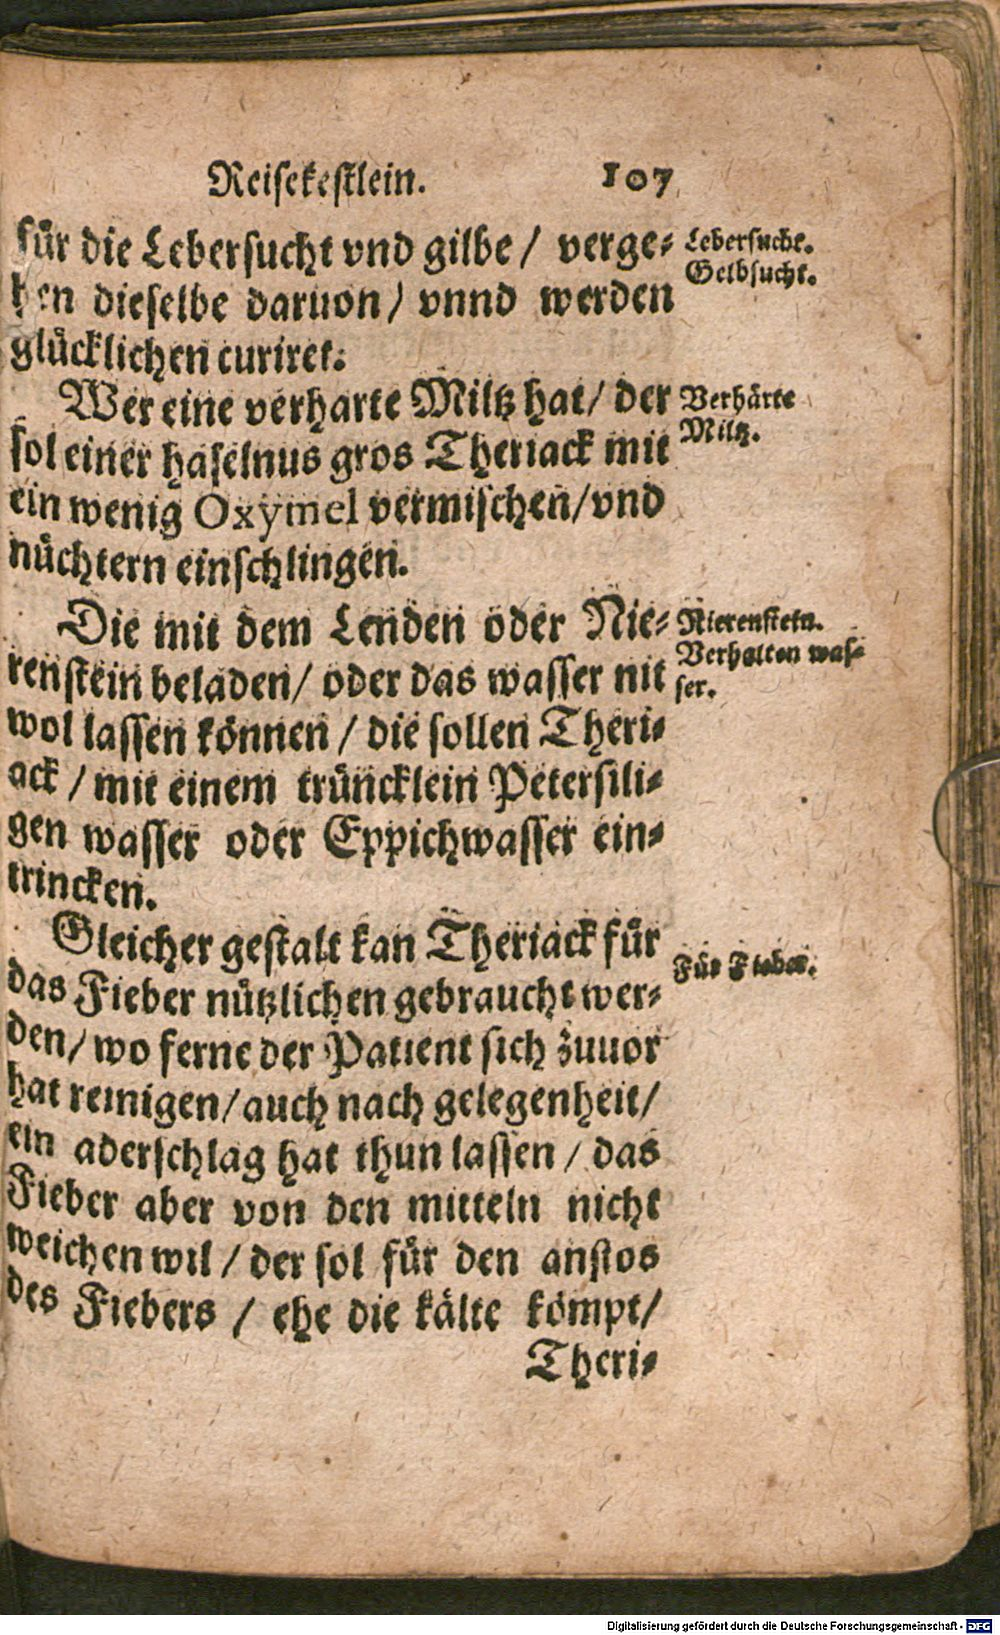 Reisekestlein. 107
für die Lebersucht vnd gilbe / verge-
hen dieselbe daruon / vnnd werden
glücklichen curiret.
Lebersucht.
Gelbsucht.
Wer eine verharte Miltz hat / der
sol einer haselnus gros Theriack mit
ein wenig Oxymel vermischen / vnd
nüchtern einschlingen.
Verhärte
Miltz.
Die mit dem Lenden oder Nie-
renstein beladen / oder das wasser nit
wol lassen können / die sollen Theri-
ack / mit einem trüncklein Petersili-
gen wasser oder Eppichwasser ein-
trincken.
Nierenstein.
Verhalten was-
ser.
Gleicher gestalt kan Theriack für
das Fieber nützlichen gebraucht wer-
den / wo ferne der Patient sich zuuor
hat reinigen / auch nach gelegenheit /
ein aderschlag hat thun lassen / das
Fieber aber von den mitteln nicht
weichen wil / der sol für den anstos
des Fiebers / ehe die kälte kömpt /
Für Fieber.
Theri-
Digitalisierung gefördert durch die Deutsche Forschungsgemeinschaft - DFG